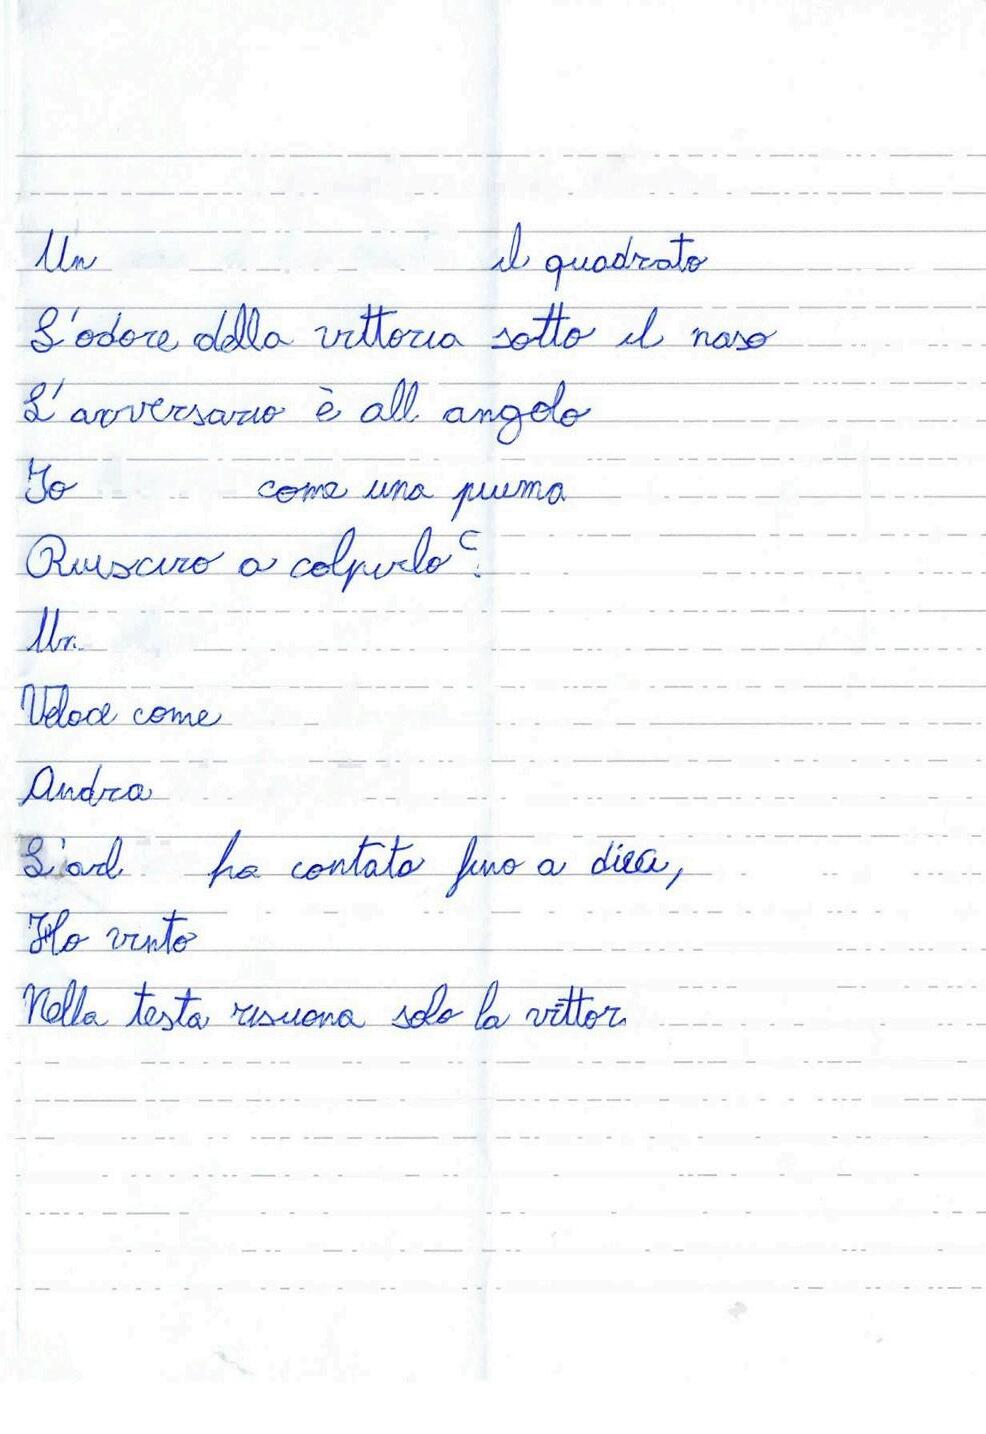 Un il quadrato
L'odore della vittoria sotto il naso
L'avversario è all angolo
Io come una piuma
Riusciro a colpirlo?
Un
Veloce come
Andra
L'ad ha contato fino a dieci,
Ho vinto
Nella testa risuona solo la vittor